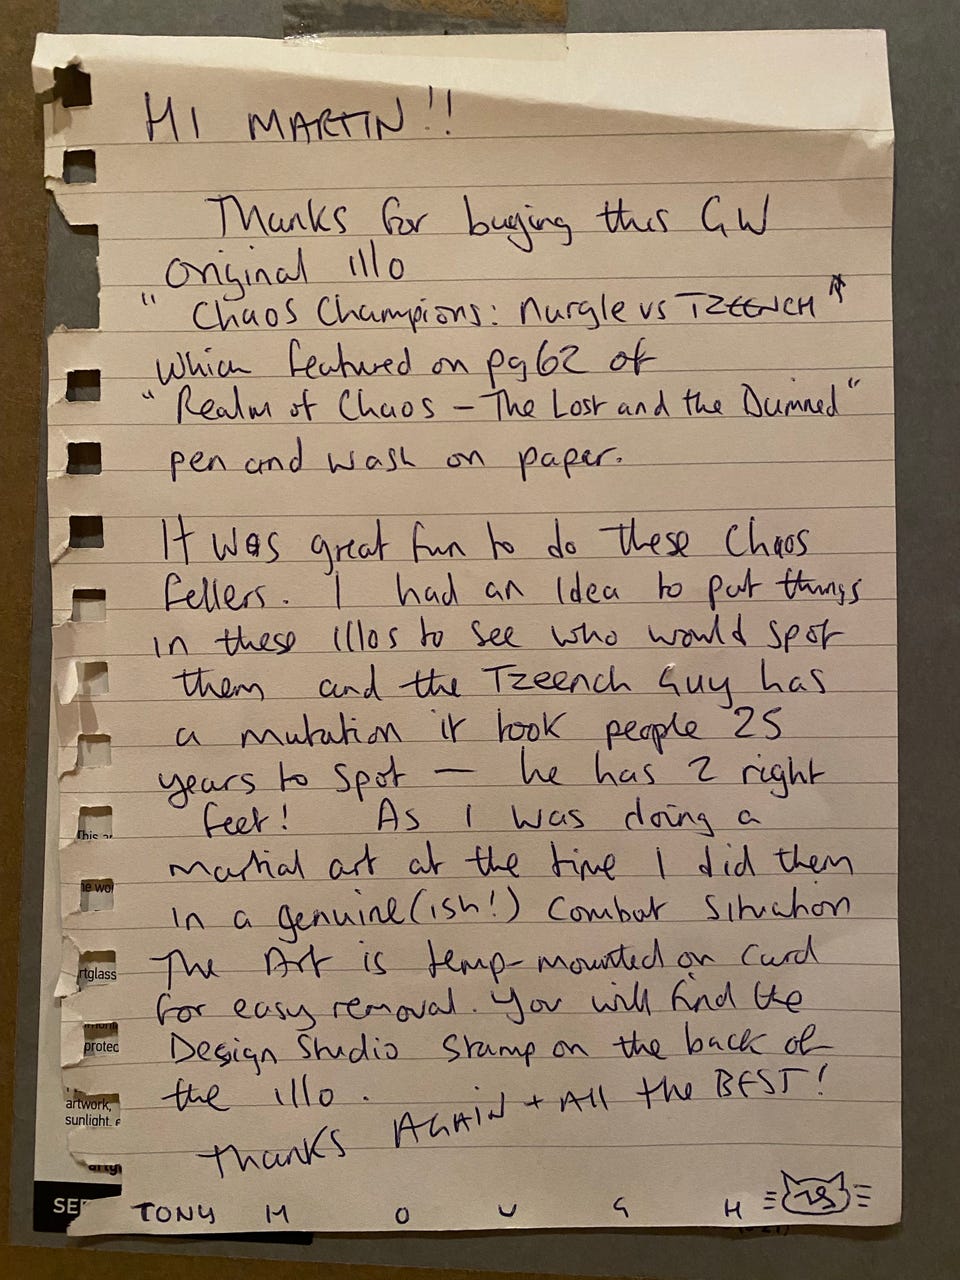 HI MARTIN!!
Thanks for buying this GW
original illo
" Chaos Champions: Nurgle vs TZEENCH "
which featured on pg 62 of
" Realm of Chaos – The Lost and the Damned "
pen and wash on paper.
It was great fun to do these Chaos
fellers. I had an idea to put things
in these illos to see who would spot
them and the Tzeench Guy has
a mutation it took people 25
years to spot — he has 2 right
feet! As I was doing a
martial art at the time I did them
in a genuine(ish!) combat situation
The Art is temp-mounted on card
for easy removal. You will find the
Design Studio stamp on the back of
the illo.
Thanks AGAIN + All the BEST!
TONY H O U G H
This
rtglass
protec
artwork,
sunlight.
SE